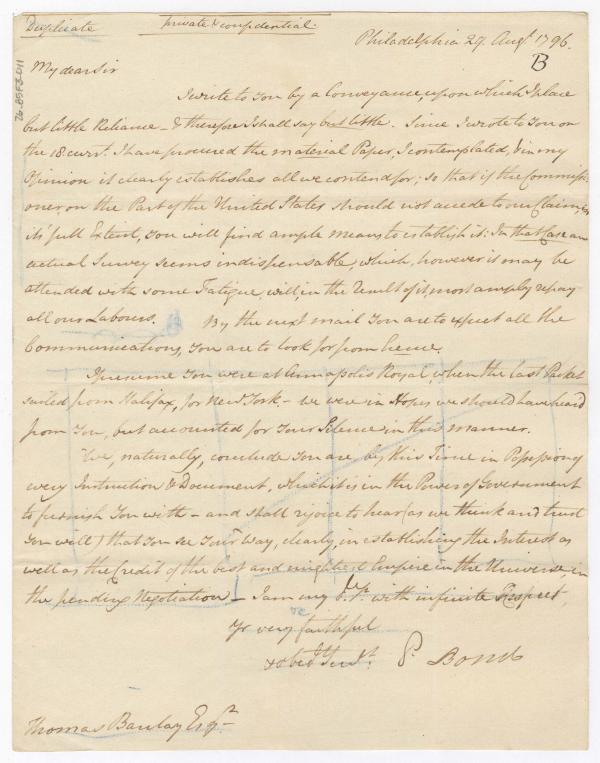 Duplicate
Private & confidential.
Philadelphia 27. Augt. 1796.
B
76-85F3-011
My dear Sir
I write to You by a Conveyance, upon which I place
but little Reliance - & therefore I shall say but little. Since I wrote to You on
the 18. currt. I have procured the material Paper, I contemplated, & in my
Opinion it clearly establishes all we contend for; so that if the Commissi-
oner on the Part of the United States should not accede to our Claim in
its full Extent, You will find ample means to establish it: In that Case an
actual Survey seems indispensable, which, however it may be
attended with some Fatigue, will, in the Result of it, most amply repay
all our Labours. By the next mail You are to expect all the
Communications, You are to look for from hence.
I presume You were at Annapolis Royal, when the last Packet
sailed from Halifax, for New York - we were in Hopes we should have heard
from You, but accounted for Your Silence in this manner.
We, naturally, conclude You are, by this Time in Possession of
every Instruction & Document, which it is in the Power of Government
to furnish You with - and shall rejoice to hear (as we think and trust
You will) that You see Your Way, clearly, in establishing the Interest as
well as the Credit of the best and mightiest Empire in the Universe, in
the pending Negotiation - I am my d. Sr. with infinite Respect,
Yr very faithful
& obedt Servt. P. Bond
Thomas Barclay Esqr